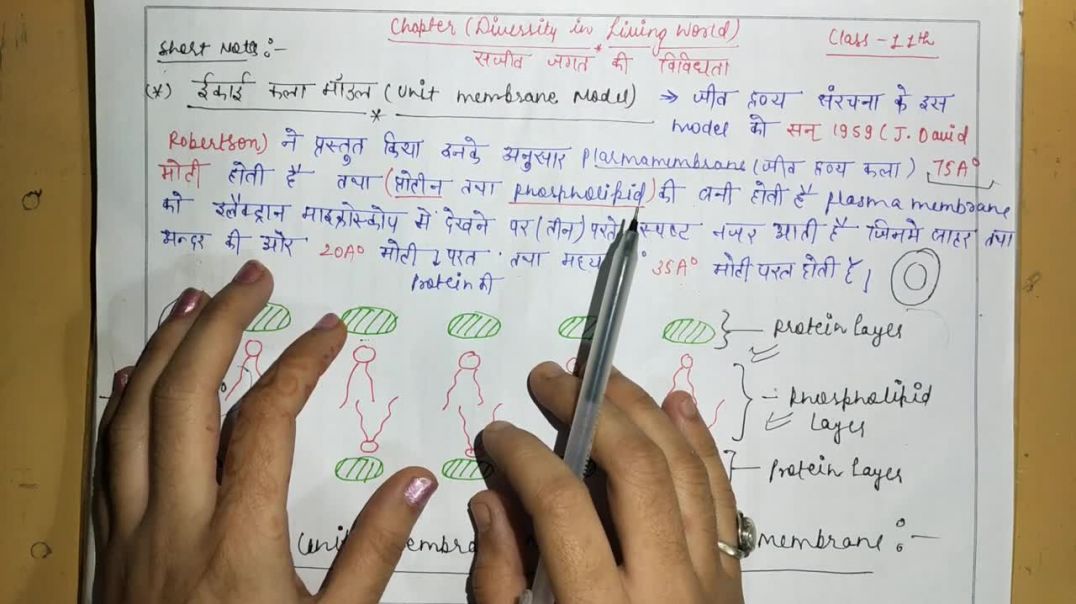 Chapter (Diversity in Living World)
Class - 11th
सजीव जगत की विविधता
Short Note :-
(*) ईकाई कला मॉडल (Unit membrane Model) → जीव द्रव्य संरचना के इस
Model को सन् 1959 (J. David
Robertson) ने प्रस्तुत किया इनके अनुसार Plasmamembrane (जीव द्रव्य कला) 75A°
मोटी होती है तथा (प्रोटीन तथा phospholipid) की बनी होती है plasma membrane
को इलैक्ट्रान माइक्रोस्कोप में देखने पर (तीन) परते स्पष्ट नजर आती है जिनमे बाहर तथा
अन्दर की ओर 20A° मोटी 1 परत तथा मध्य 35A° मोटी परत होती है।
protein की
protein layer
phospholipid
Layer
protein layer
membrane :-